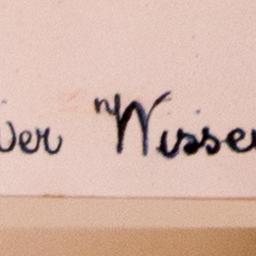 ver "Wisse